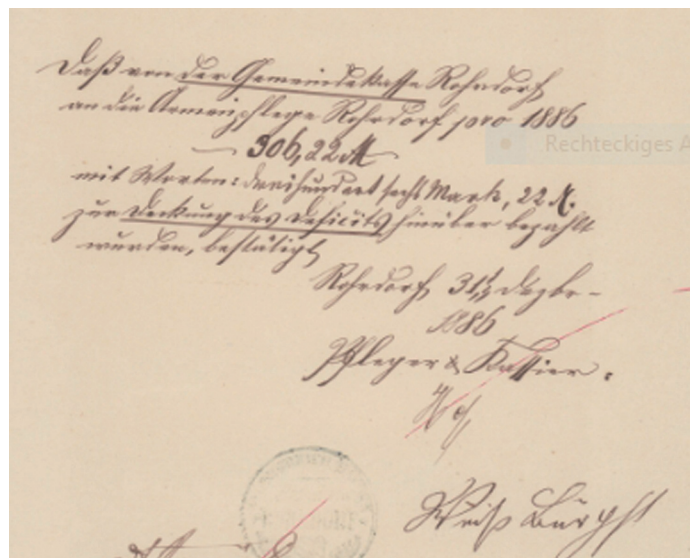 Daß von der Gemeindekasse Rohrdorf
an die Armenpflege Rohrdorf pro 1886
Rechteckiges A
— 306,22 M —
mit Worten: dreihundert sechs Mark, 22 
zur Deckung des Deficits hinüber bezahlt
wurden, bestätigt
Rohrdorf 31 Dezbr.
1886
Pfleger & Kassier:
Weiß Bürgst